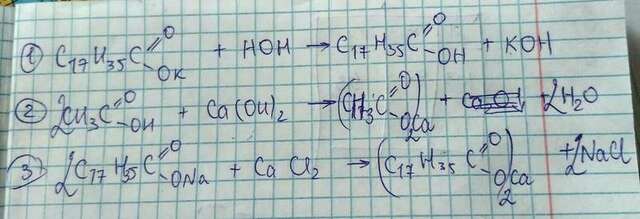 ① C₁₇H₃₅C(=O)OK + HOH → C₁₇H₃₅C(=O)OH + KOH
② 2CH₃C(=O)OH + Ca(OH)₂ → (CH₃C(=O)O)₂Ca + 2H₂O
③ 2C₁₇H₃₅C(=O)ONa + CaCl₂ → (C₁₇H₃₅C(=O)O)₂Ca + 2NaCl